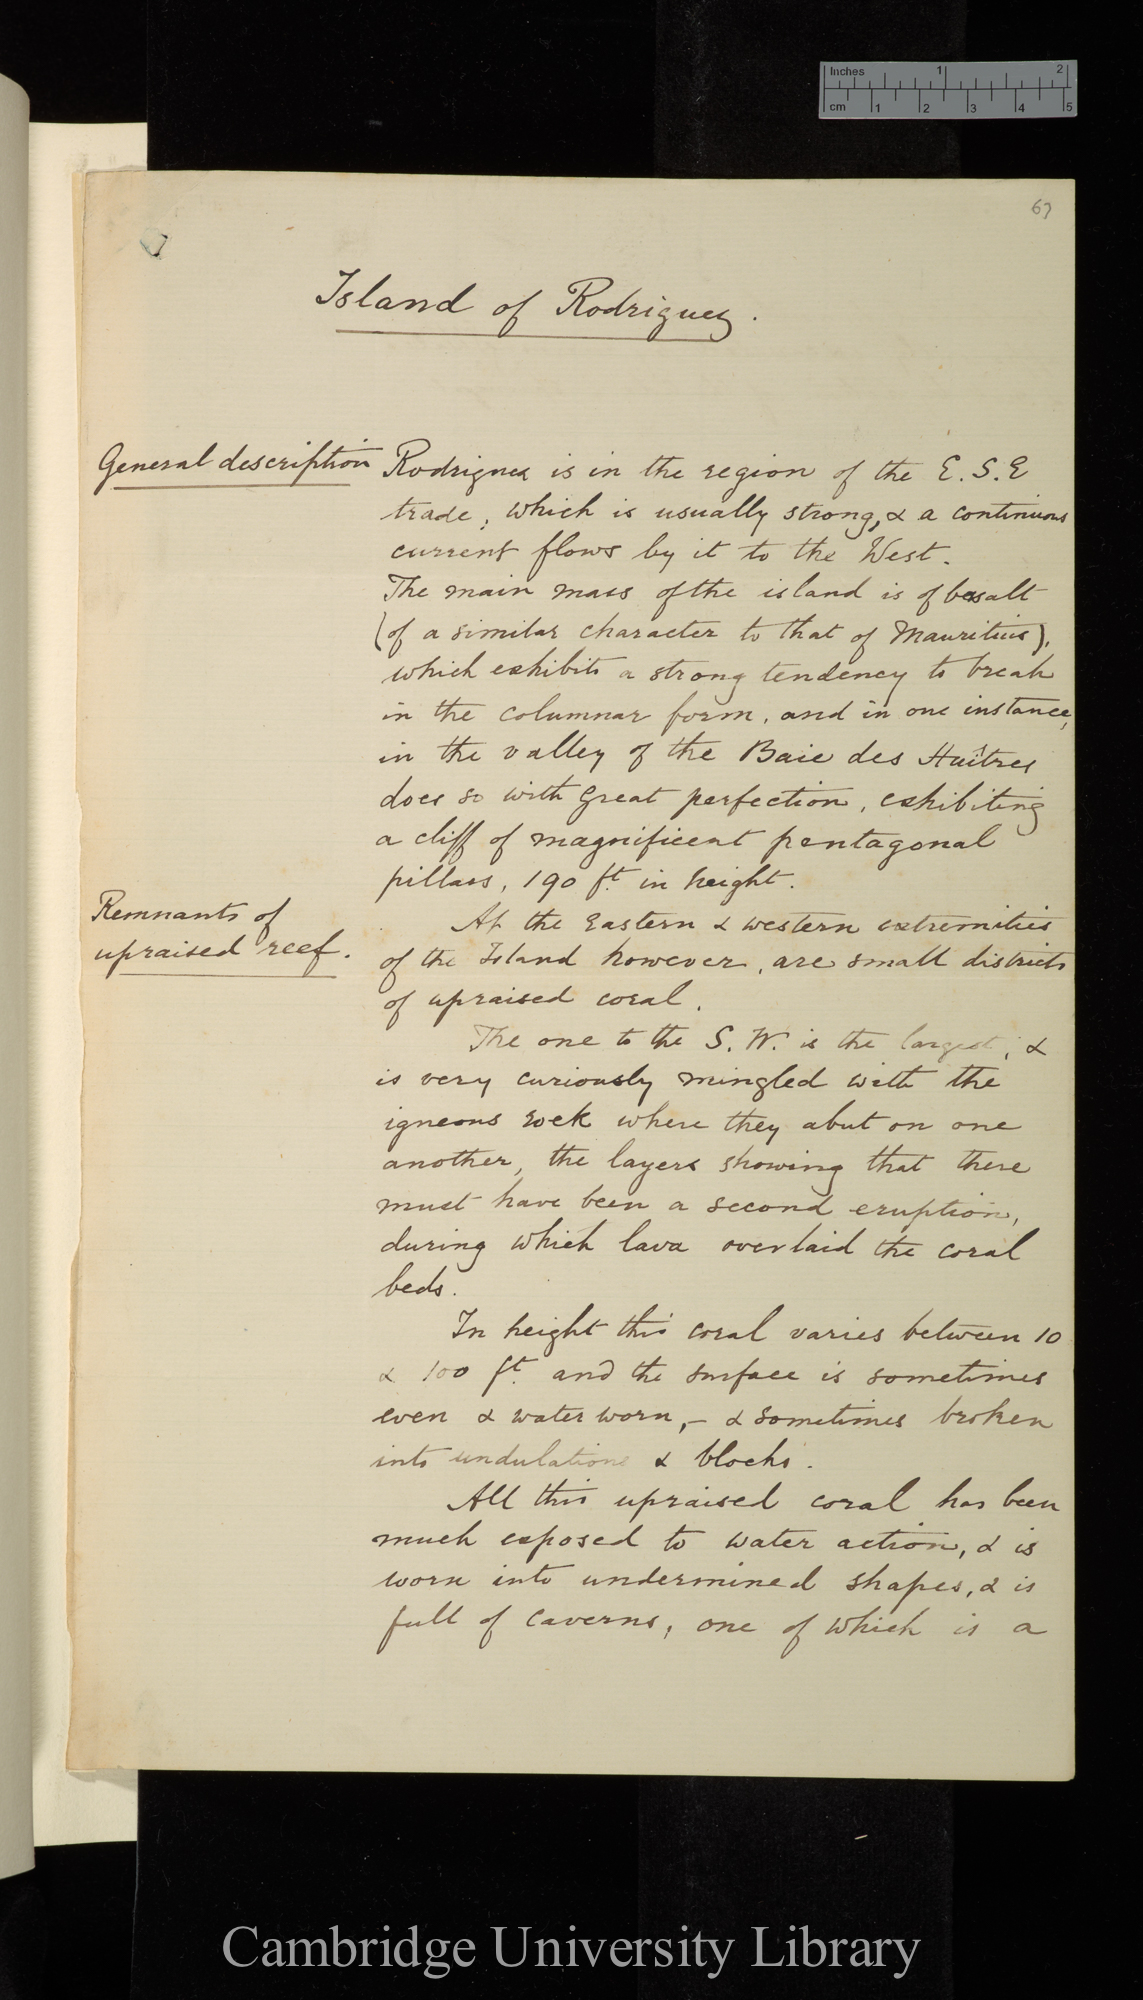 Inches 1 2
cm 1 2 3 4 5
67
Island of Rodriguez.
General description
Rodriguez is in the region of the E.S.E
trade, which is usually strong, & a continuous
current flows by it to the West.
The main mass of the island is of basalt
(of a similar character to that of Mauritius),
which exhibits a strong tendency to break
in the columnar form, and in one instance,
in the valley of the Baie des Huîtres
does so with great perfection, exhibiting
a cliff of magnificent pentagonal
pillars, 190 ft. in height.
Remnants of
upraised reef.
At the Eastern & western extremities
of the Island however, are small districts
of upraised coral.
The one to the S.W. is the largest, &
is very curiously mingled with the
igneous rock where they abut on one
another, the layers showing that there
must have been a second eruption,
during which lava overlaid the coral
beds.
In height this coral varies between 10
& 100 ft. and the surface is sometimes
even & water worn, - & sometimes broken
into undulations & blocks.
All this upraised coral has been
much exposed to water action, & is
worn into undermined shapes, & is
full of caverns, one of which is a
Cambridge University Library